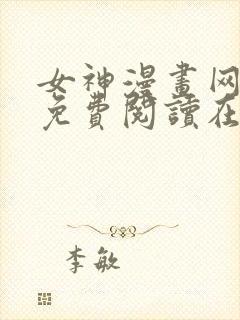 女神漫畫网
免費閱讀在
李敏